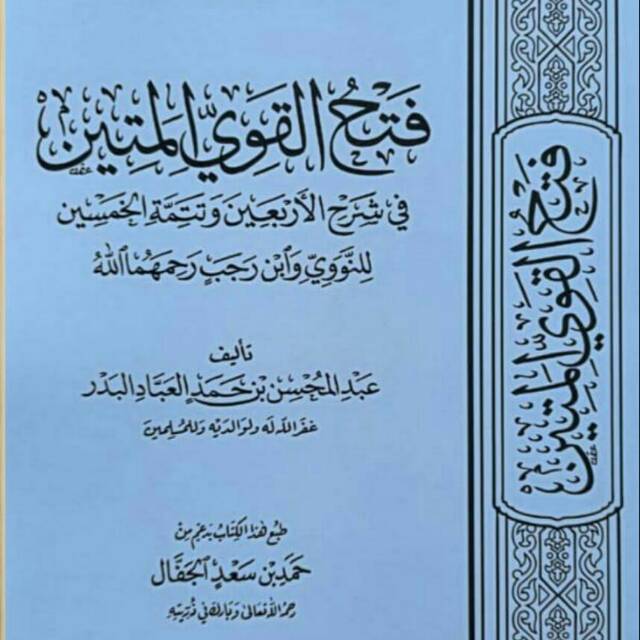 فَتْحُ القَوِيِّ المَتِينِ
في شَرْحِ الأَرْبَعِينَ وَتَتِمَّةِ الخَمْسِينَ
لِلنَّوَوِيِّ وَابْنِ رَجَبٍ رَحِمَهُمَا اللهُ
تأليف
عَبْدِ المُحْسِنِ بْنِ حَمَدٍ العَبَّادِ البَدْرِ
غفر الله له ولوالديه وللمسلمين
طبع هذا الكتاب بدعم من
حمد بن سعد الجفال
رحمه الله تعالى وبارك في ذريته
فَتْحُ القَوِيِّ المَتِينِ